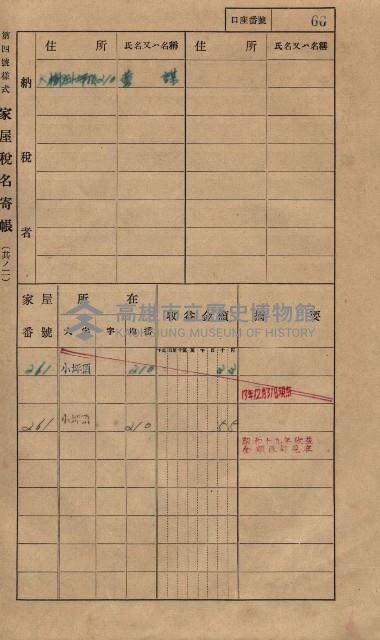 口座番號 66
第四號樣式
家屋稅名寄帳
(共ノ二)
納稅者
住所 氏名又ハ名稱 住所 氏名又ハ名稱
家屋番號 所在 收益金額 摘要
大字 字 地番
高雄市立歷史博物館
KAOHSIUNG MUSEUM OF HISTORY
261 小坪頂 210 22
13年12月31日現在
261 小坪頂 210 55
昭和十九年收益
金額改訂